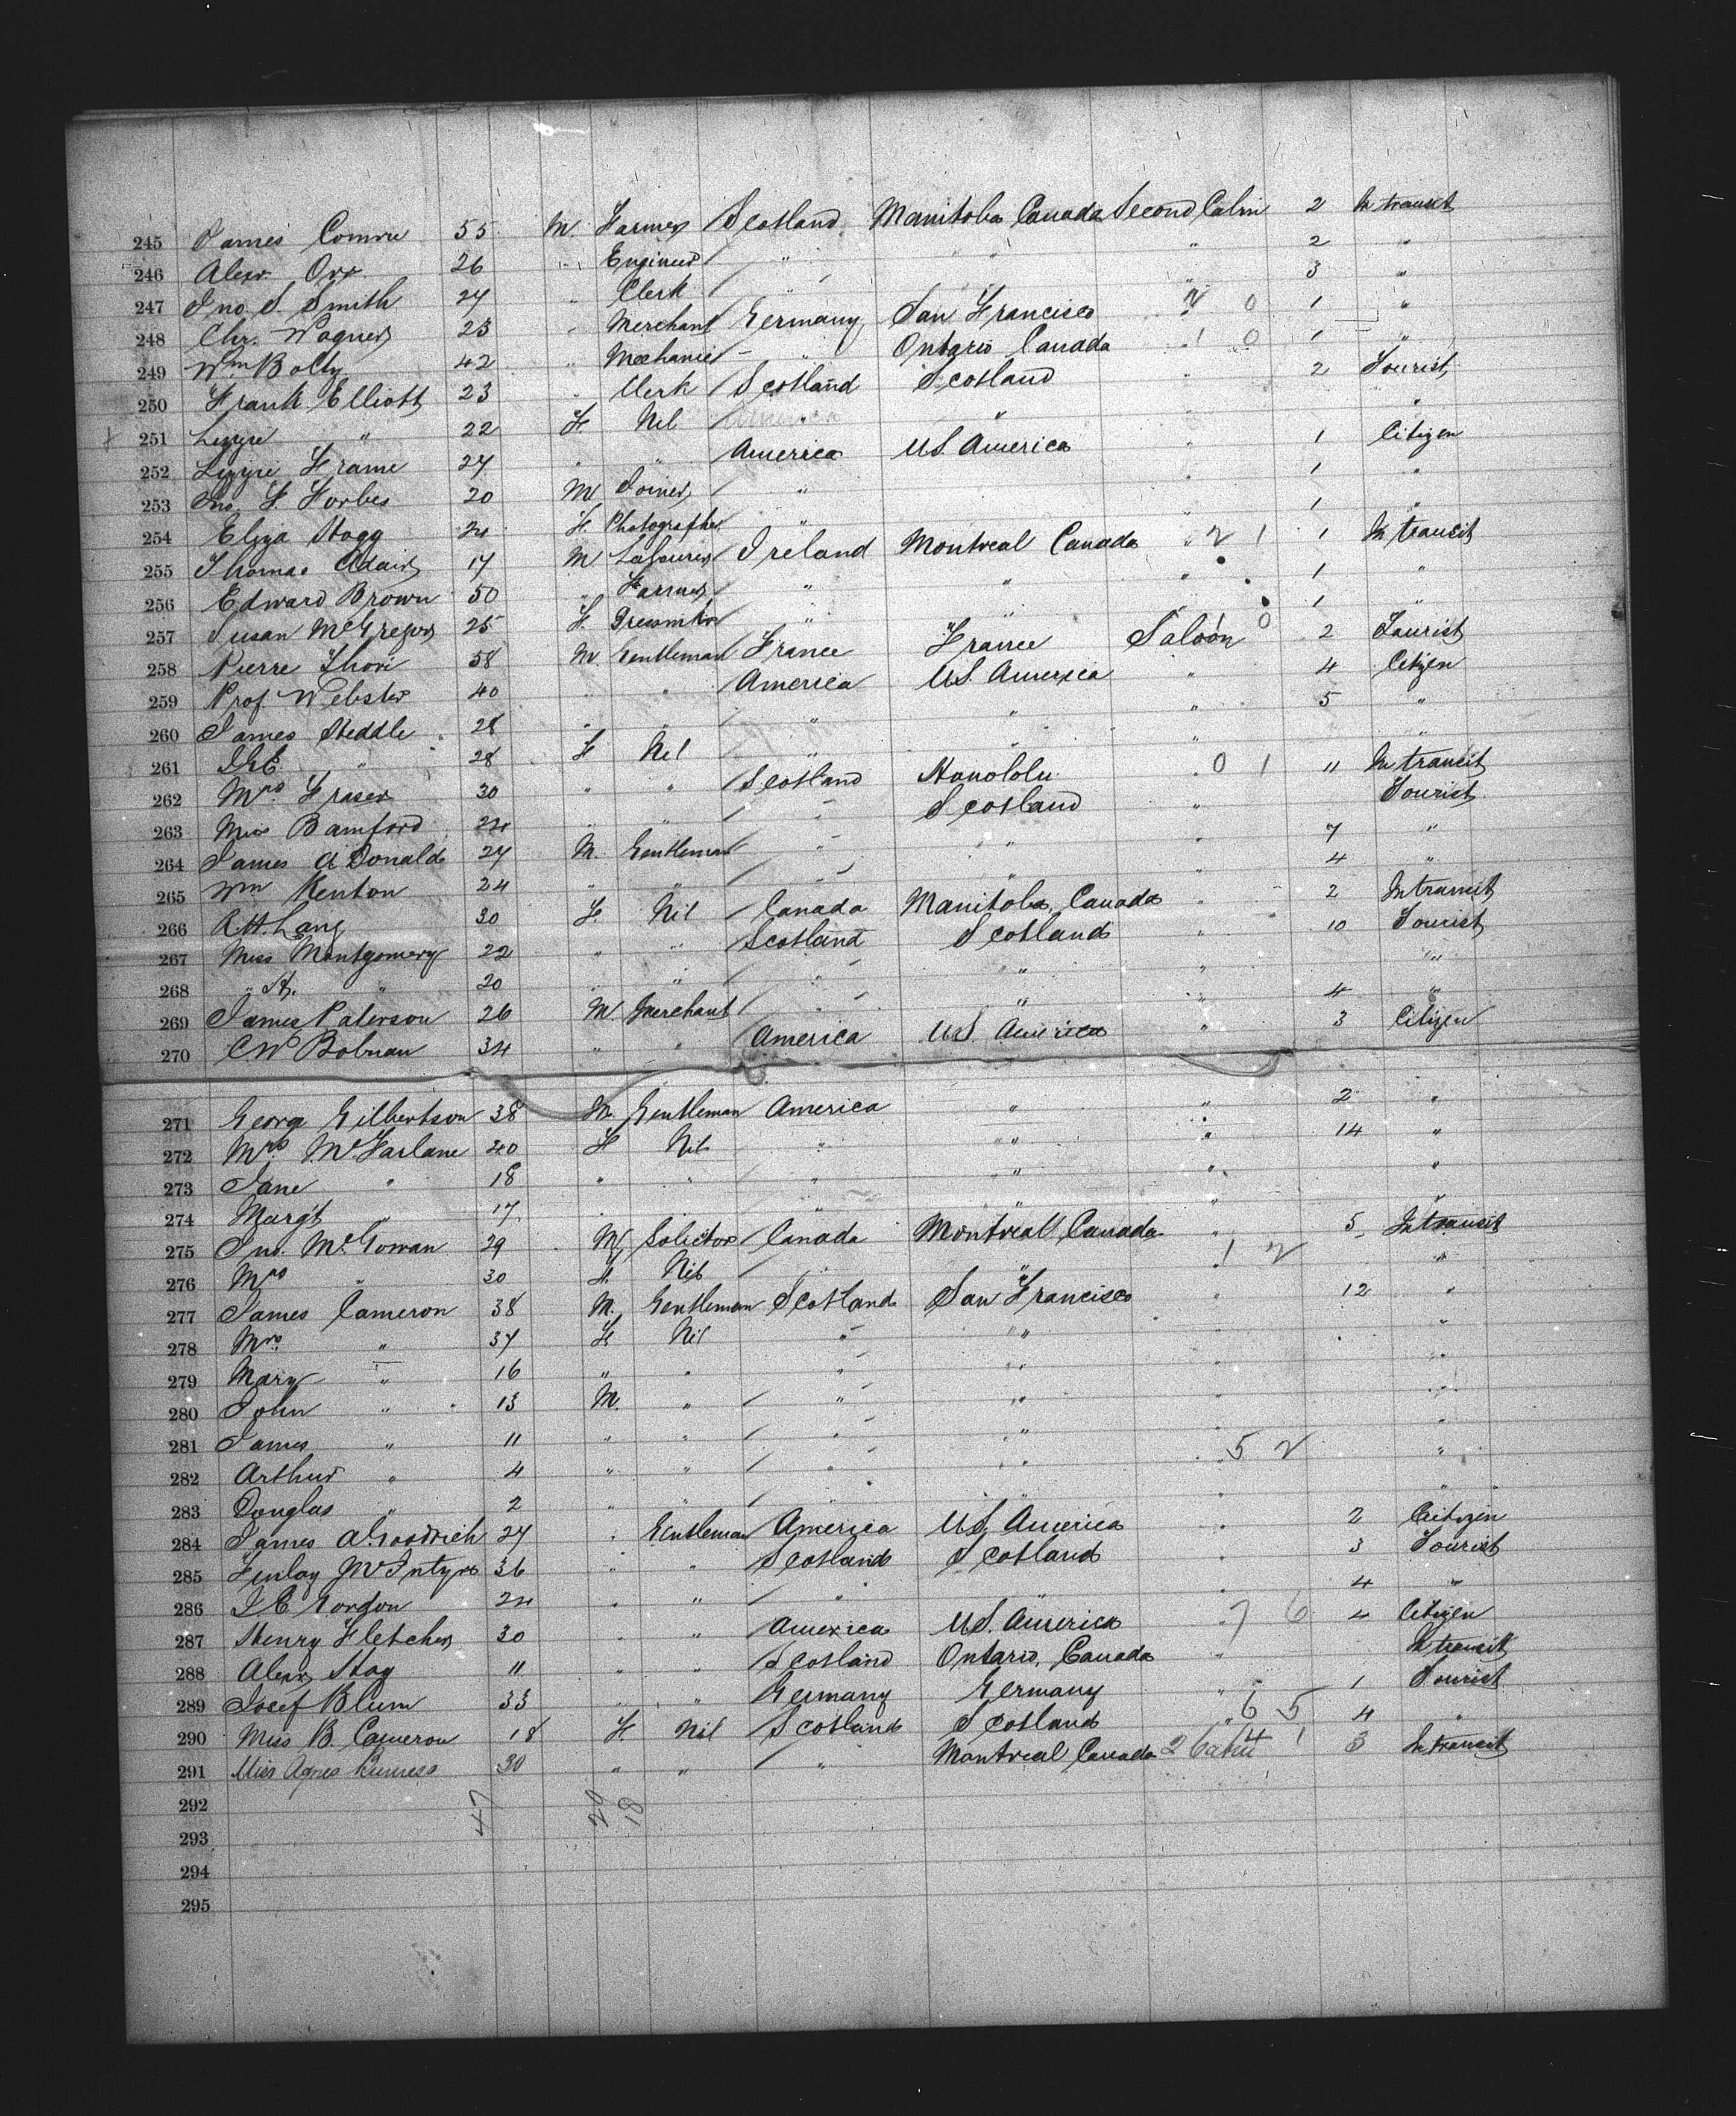 245 James Comrie 55 M. Farmer Scotland Manitoba Canada Second Cabin 2 In transit
246 Alexr. Orr 26 " Engineer " " " 2 "
247 Jno. S. Smith 27 " Clerk " " " 3 "
248 Chr. Wagner 23 " Merchant Germany San Francisco " 0 1 "
249 Wm Bolty 42 " Mechanic " Ontario Canada " 1 0 1 "
250 Frank Elliott 23 " Clerk Scotland Scotland " 2 Tourist
251 Lizzie " 22 F. Nil " " " "
252 Lizzie Frame 27 " " America US America " 1 Citizen
253 Jno. F. Forbes 20 M Joiner " " 1 "
254 Eliza Hogg 24 F. Photographer " " 1 "
255 Thomas Adair 17 M Labourer Ireland Montreal Canada " 2 1 1 In transit
256 Edward Brown 50 " Farmer " " " 1 "
257 Susan McGregor 25 F. Dressmkr " " " 1 "
258 Pierre Thori 58 M Gentleman France France Saloon 0 2 Tourist
259 Prof. Webster 40 " " America US. America " 4 Citizen
260 James Heddle 28 " " " " " 5 "
261 " 28 F Nil " " " "
262 Mrs. Fraser 30 " " Scotland Honololu " 0 1 11 In transit
263 Miss Bamford 24 " " " Scotland " Tourist
264 James A Donald 27 M. Gentleman " " " 7 "
265 Wm Kenton 24 " " " " " 4 "
266 A.H. Lang 30 F. Nil Canada Manitoba, Canada " 2 In transit
267 Miss Montgomery 22 " " Scotland Scotland " 10 Tourist
268 " A. " 20 " " " " " "
269 James Paterson 26 M. Merchant " " " 4 "
270 CW Bobnan 34 " " America US. America " 3 Citizen
271 George Gilbertson 38 M. Gentleman America " " 2 "
272 Mrs. McFarlane 40 F Nil " " " 14 "
273 Jane " 18 " " " " " "
274 Margt " 17 " " " " " "
275 Jno. McGowan 29 M Solicitor Canada Montreal Canada " 5 In transit
276 Mrs " 30 F. Nil " " " 1 2 "
277 James Cameron 38 M. Gentleman Scotland San Francisco " 12 "
278 Mrs. " 37 F Nil " " " "
279 Mary " 16 " " " " " "
280 John " 13 M. " " " "
281 James " 11 " " " " " "
282 Arthur " 4 " " " " " 5 2 "
283 Douglas " 2 " " " " " "
284 James A. Goodrich 27 " Gentleman America US. America " 2 Citizen
285 Finlay McIntyre 36 " " Scotland Scotland " 3 Tourist
286 J E Gordon 24 " " " " " 4 "
287 Henry Fletcher 30 " " America US. America " 7 6 4 Citizen
288 Alexr Hay 11 " " Scotland Ontario, Canada " In transit
289 Josef Blum 33 " " Germany Germany " 1 Tourist
290 Miss B. Cameron 18 F. Nil Scotland Scotland " 6 5 4 "
291 Miss Agnes 30 " " " Montreal Canada 2 Cabin 4 1 3 In transit
292 47 20 18
293
294
295